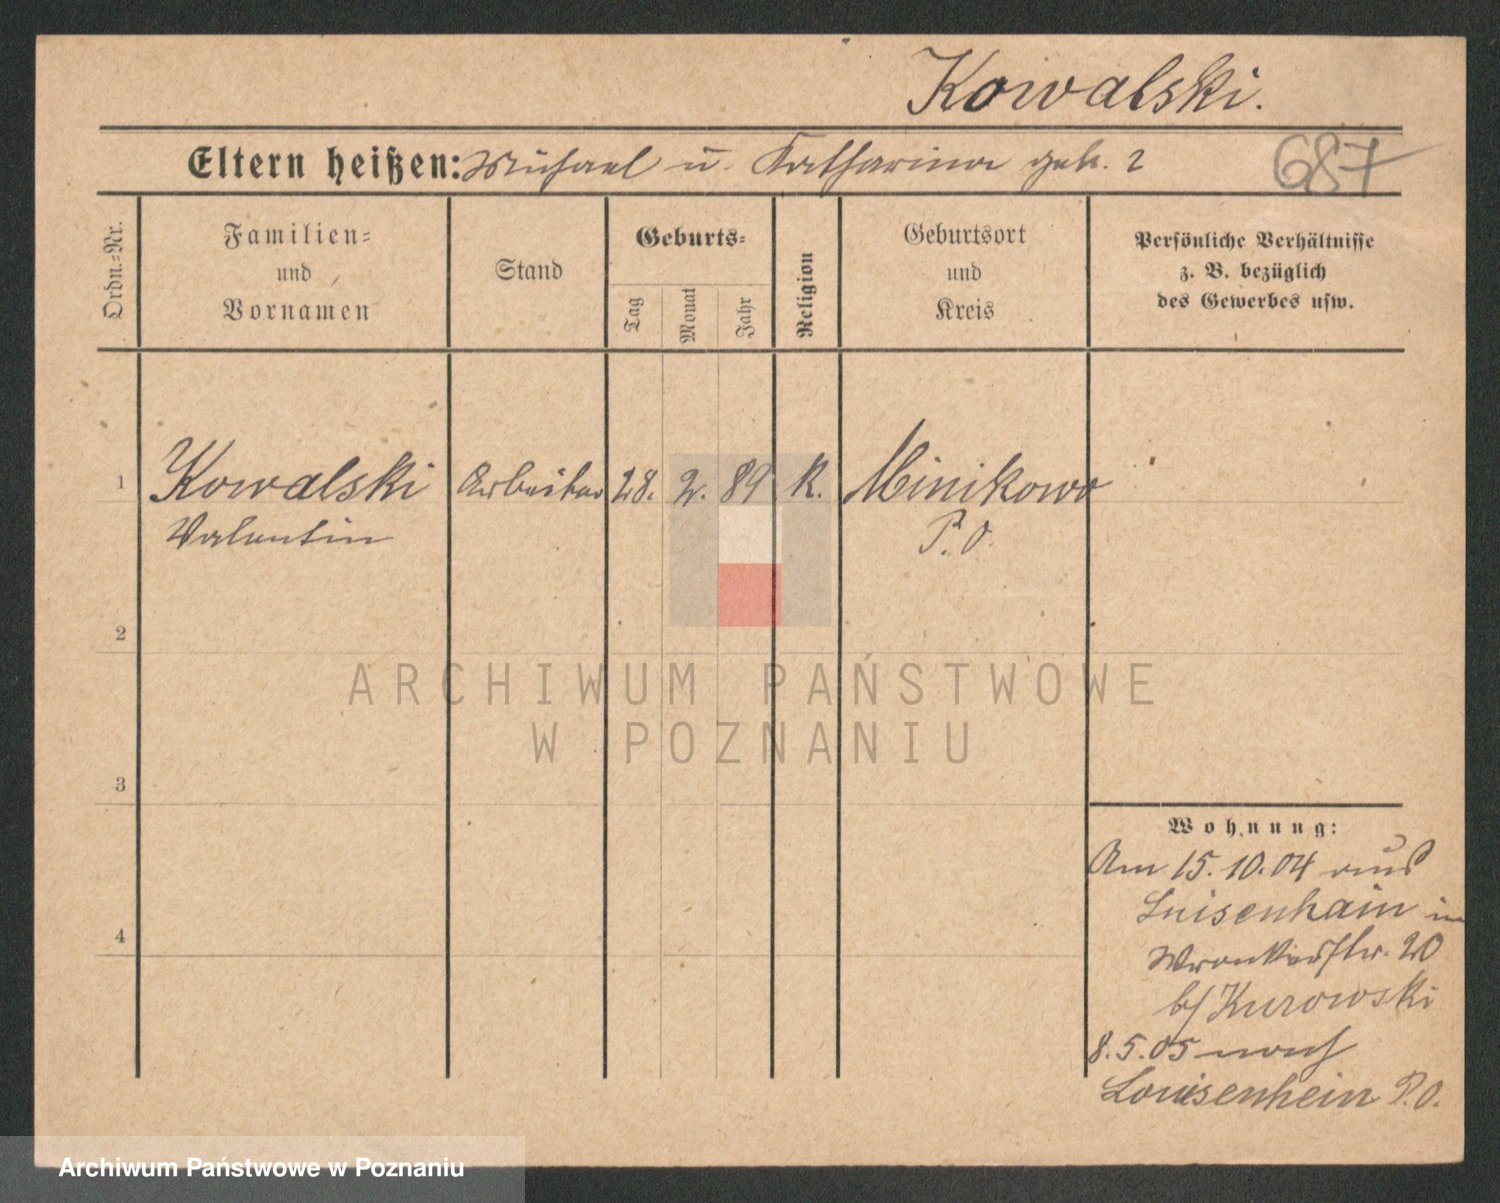 Kowalski.
Eltern heißen: Michael u. Katharina geb. ?
687
Ordn.-Nr.
Familien-
und
Vornamen
Stand
Geburts-
Tag
Monat
Jahr
Religion
Geburtsort
und
Kreis
Persönliche Verhältnisse
z. B. bezüglich
des Gewerbes usw.
1 Kowalski Arbeiter 28. 2. 89 K. Minikowo
Valentin P. O.
2
3
4
Wohnung:
Am 15.10.04 aus
Luisenhain in
Wronkerstr. 20
b/ Kurowski
8.5.05 nach
Louisenhein P.O.
ARCHIWUM PAŃSTWOWE
W POZNANIU
Archiwum Państwowe w Poznaniu